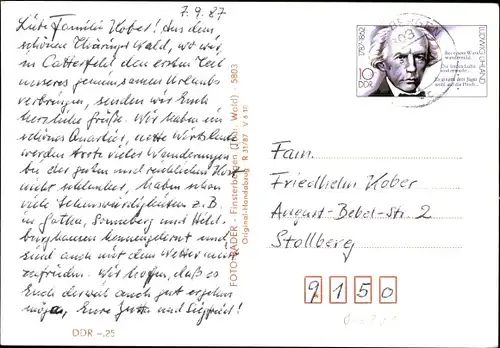 7.9.87
Liebe Familie Hober! Aus dem
schönen Thüringer Wald, wo wir
in Catterfeld den ersten Teil
unseres gemeinsamen Urlaubs
verbringen, senden wir Euch
herzliche Grüße. Wir haben ein
schönes Quartier, nette Wirtsleute
werden trotz vieler Wanderungen
bei der guten und reichlichen Kost
nicht schlanker, haben schon
viele Sehenswürdigkeiten z.B.
in Gotha, Sonneberg und Hild-
burghausen kennengelernt und
sind auch mit dem Wetter
zufrieden. Wir hoffen, daß es
Euch derweil auch gut ergehen
möge, Eure Jutta und Siegfried!
DDR -,25
FOTO-BÄDER - Finsterbergen (Thür. Wald) - 5803
Original-Handabzug R 31/87 V 6 10
1787-1862
10
DDR
LUDWIG UHLAND
Fam.
Friedhelm Hober
August-Bebel-Str. 2
Stollberg
9150